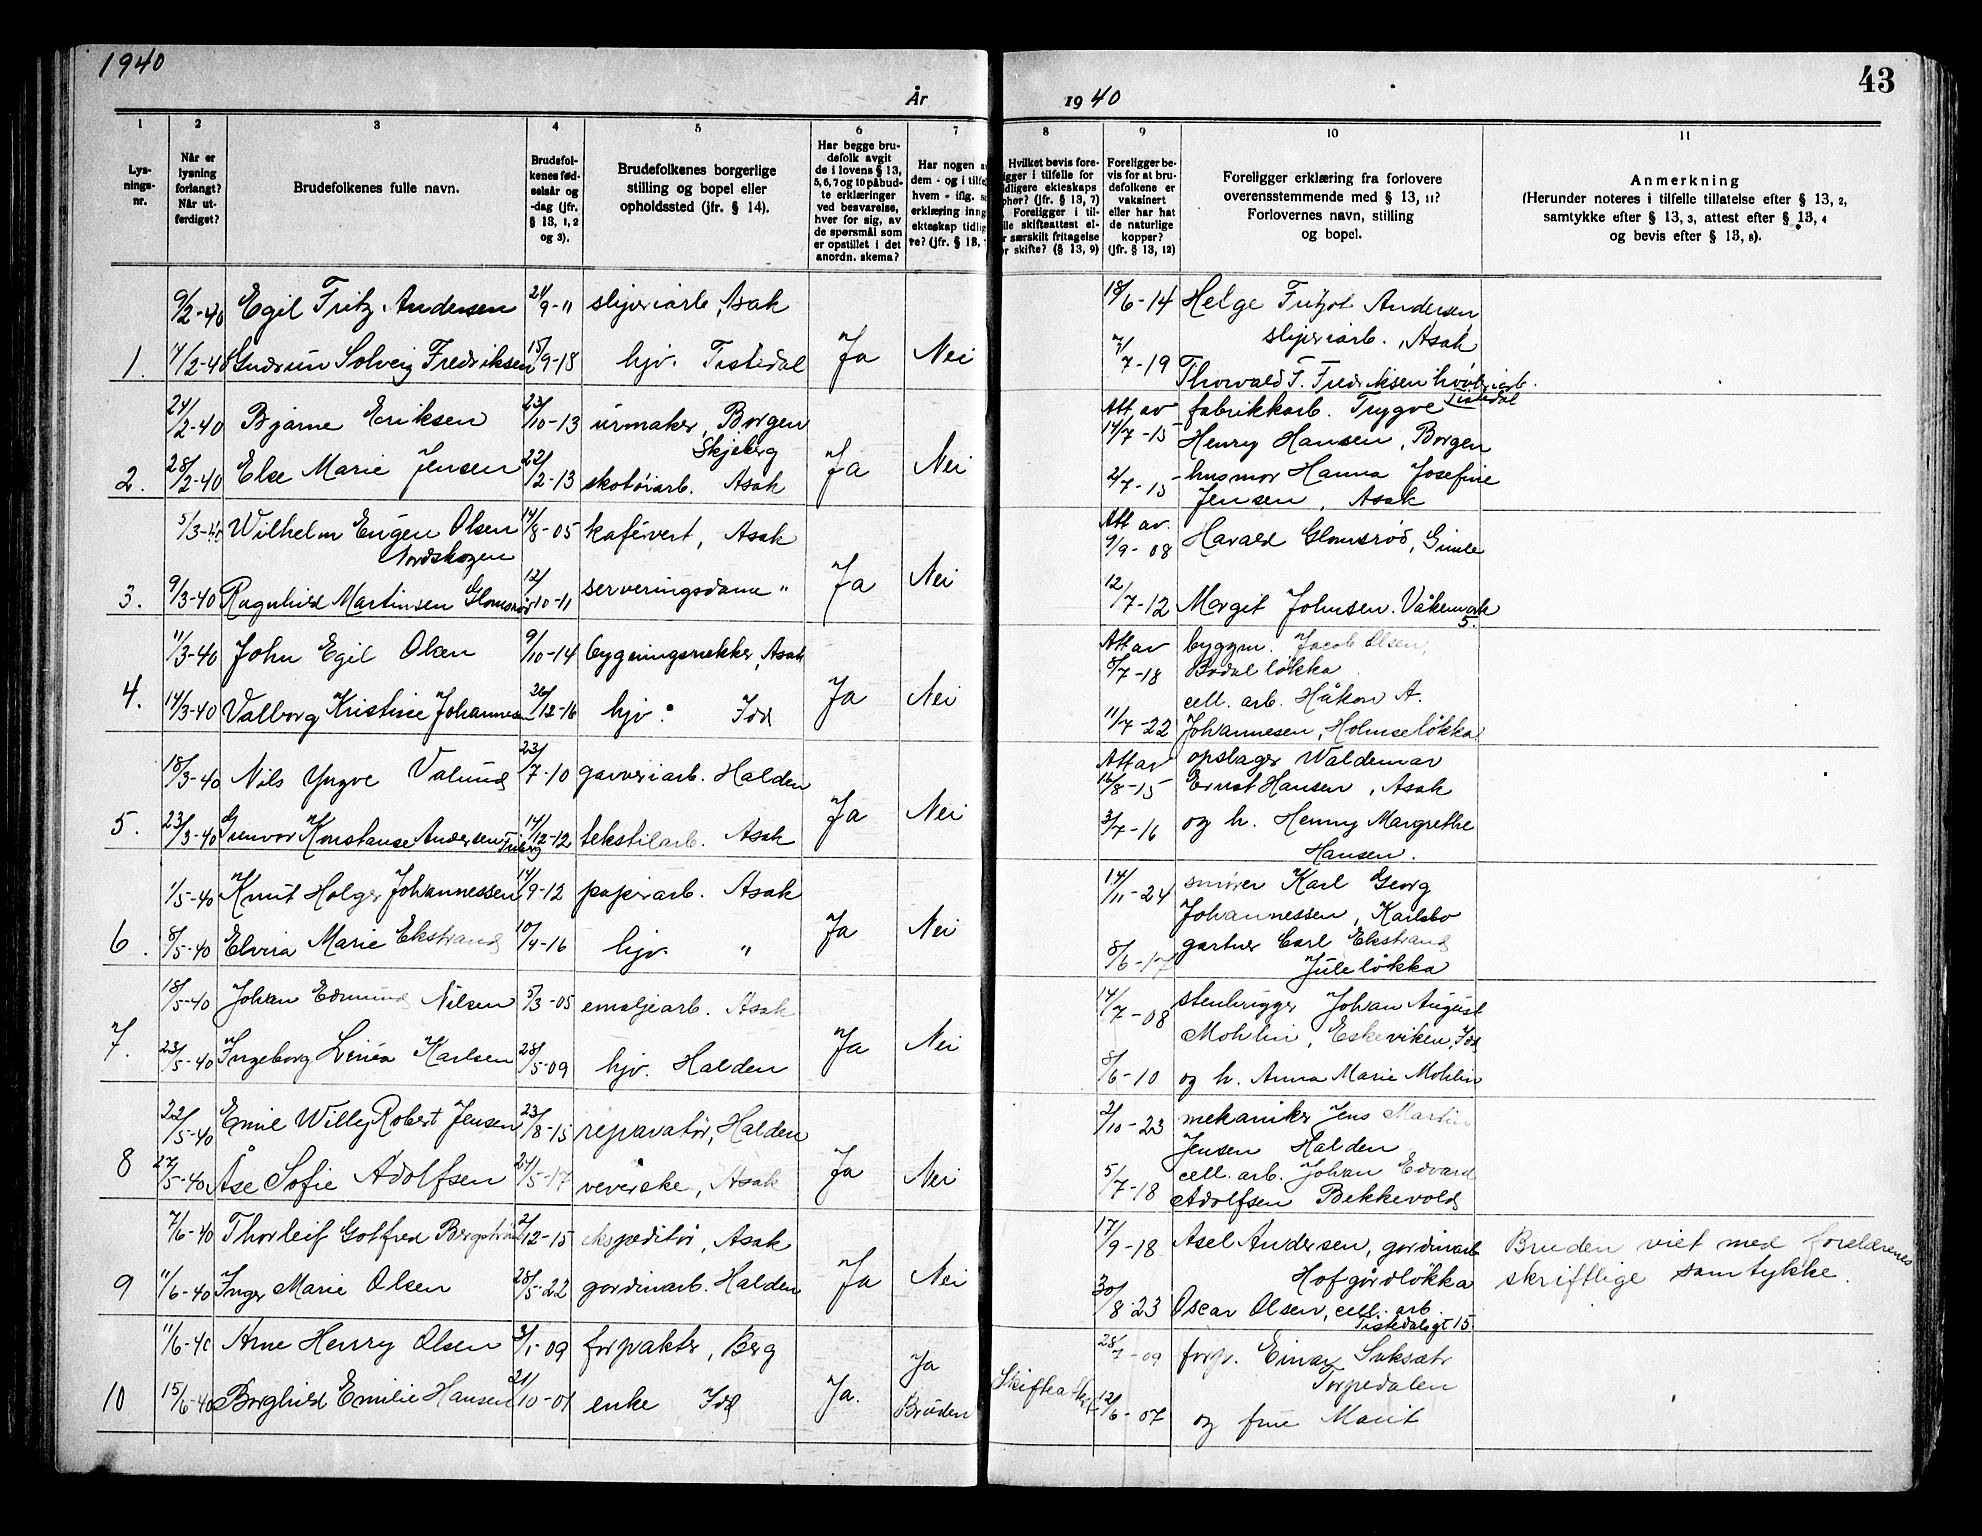 1940
År
1940
43
1
2
3
4
5
6
7
8
9
10
11
Lys-
nings-
nr.
Når er
lysning
forlangt?
Når ut-
ferdiget?
Brudefolkenes fulle navn.
Brudefol-
kenes fød-
selsår og
-dag (jfr.
§ 13, 1, 2
og 3).
Brudefolkenes borgerlige
stilling og bopel eller
opholdssted (jfr. § 14).
Har begge bru-
defolk avgit
de i lovens § 13,
5, 6, 7 og 10 påbud-
te erklæringer
ved besvarelse,
hver for sig, av
de spørsmål som
er opstillet i det
anordn. skema?
Har nogen a
dem - og i tilfe
hvem - iflg. s
erklæring inng
ekteskap tidlig
re? (jfr. § 13,
Hvilket bevis fore-
ligger i tilfelle for
tidligere ekteskaps
ophør? (jfr. § 13, 7)
Foreligger i til-
lle skifteattest el-
r særskilt fritagelse
r skifte? (§ 13, 9)
Foreligger be-
vis for at bru-
defolkene er
vaksinert
eller har hat
de naturlige
kopper?
(jfr. § 13, 12)
Foreligger erklæring fra forlovere
overensstemmende med § 13, 11?
Forlovernes navn, stilling
og bopel.
Anmerkning
(Herunder noteres i tilfelle tillatelse efter § 13, 2,
samtykke efter § 13, 3, attest efter § 13, 4
og bevis efter § 13, 8).
9/2-40 Egil Fritz Andersen 21/9-11 sliperiarb, Asak 18/6-14 Helge Fritjof Andersen
sliperiarb., Asak
1. 14/2-40 Gudrun Solveig Fredriksen 15/9-18 hjv. Tistedal Ja Nei 7/7-19 Thorvald T. Fredriksen
Tistedal
24/2-40 Bjarne Eriksen 23/10-13 urmaker, Borgen Att av fabrikkarb. Trygve
Skjeberg 14/7-15 Henry Hansen, Borgen
2. 28/2-40 Else Marie Jensen 22/2-13 skotøiarb. Asak Ja Nei 2/7-15 husmor Hanna Josefine
Jensen, Asak
5/3-40 Wilhelm Eugen Olsen 14/8-05 kafévert, Asak Att av.
Nordskogen 9/9-08 Harald Glomsrød, Gimle
3. 9/3-40 Ragnhild Martinsen Glomsrød 12/10-11 serveringsdame " Ja Nei 12/7-12 Margit Johnsen. Våkenvok
5.
11/3-40 John Egil Olsen 9/10-14 bygningssnekker, Asak Att av byggm. Jacob Olsen,
8/7-18 Bødal løkka
4. 14/3-40 Valborg Kristine Johannesen 26/12-16 hjv. Idd Ja Nei cell. arb. Håkon A.
11/7-22 Johannesen, Holmseløkka
18/3-40 Nils Yngve Valund 23/7-10 garveriarb. Halden Att av opslager Waldemar
16/8-15 Ernst Hansen, Asak
5. 23/3-40 Gunvor Konstanse Andersen 14/12-12 tekstilarb. Asak Ja Nei 3/7-16 og h. Henny Margrethe
Hansen.
1/5-40 Knut Holger Johannessen 14/9-12 papirarb. Asak 14/11-24 smører Karl Georg
Johannessen, Karlsbo
6. 8/5-40 Elvira Marie Ekstrand 10/4-16 hjv. " Ja Nei 8/6-17 gartner Carl Ekstrand
Juleløkka
18/5-40 Johan Edmund Nilsen 5/3-05 emaljearb. Asak 14/7-08 stenhugger Johan August
Mohlin, Eskeviken, Idd
7. 23/5-40 Ingeborg Linéa Karlsen 28/5-09 hjv. Halden Ja Nei 8/6-10 og h. Anna Marie Mohlin
22/5-40 Emil Willy Robert Jensen 23/8-15 reparatør, Halden 2/10-23 mekaniker Jens Martin
Jensen Halden
8 27/5-40 Åse Sofie Adolfsen 24/5-17 veverske, Asak Ja Nei 5/7-18 cell. arb. Johan Edvard
Adolfsen Bekkevold
7/6-40 Thorleif Gotfred Bergstrøm 2/12-15 ekspeditør, Asak 17/9-18 Axel Andersen, gardinarb Bruden viet med foreldrenes
Hofgårdløkka skriftlige samtykke.
9 11/6-40 Inger Marie Olsen 28/5-22 gardinarb. Halden Ja Nei 30/8-23 Oscar Olsen, cell. arb
Tistedalsgt 15.
11/6-40 Arne Henry Olsen 3/1-09 forpakter, Berg Ja 28/7-09 forp. Einar Saksæter
Torpedalen
10 15/6-40 Borghild Emilie Hansen 21/10-01 enke Idd Ja. Bruden Skifteattest 12/6-07 og frue Marit